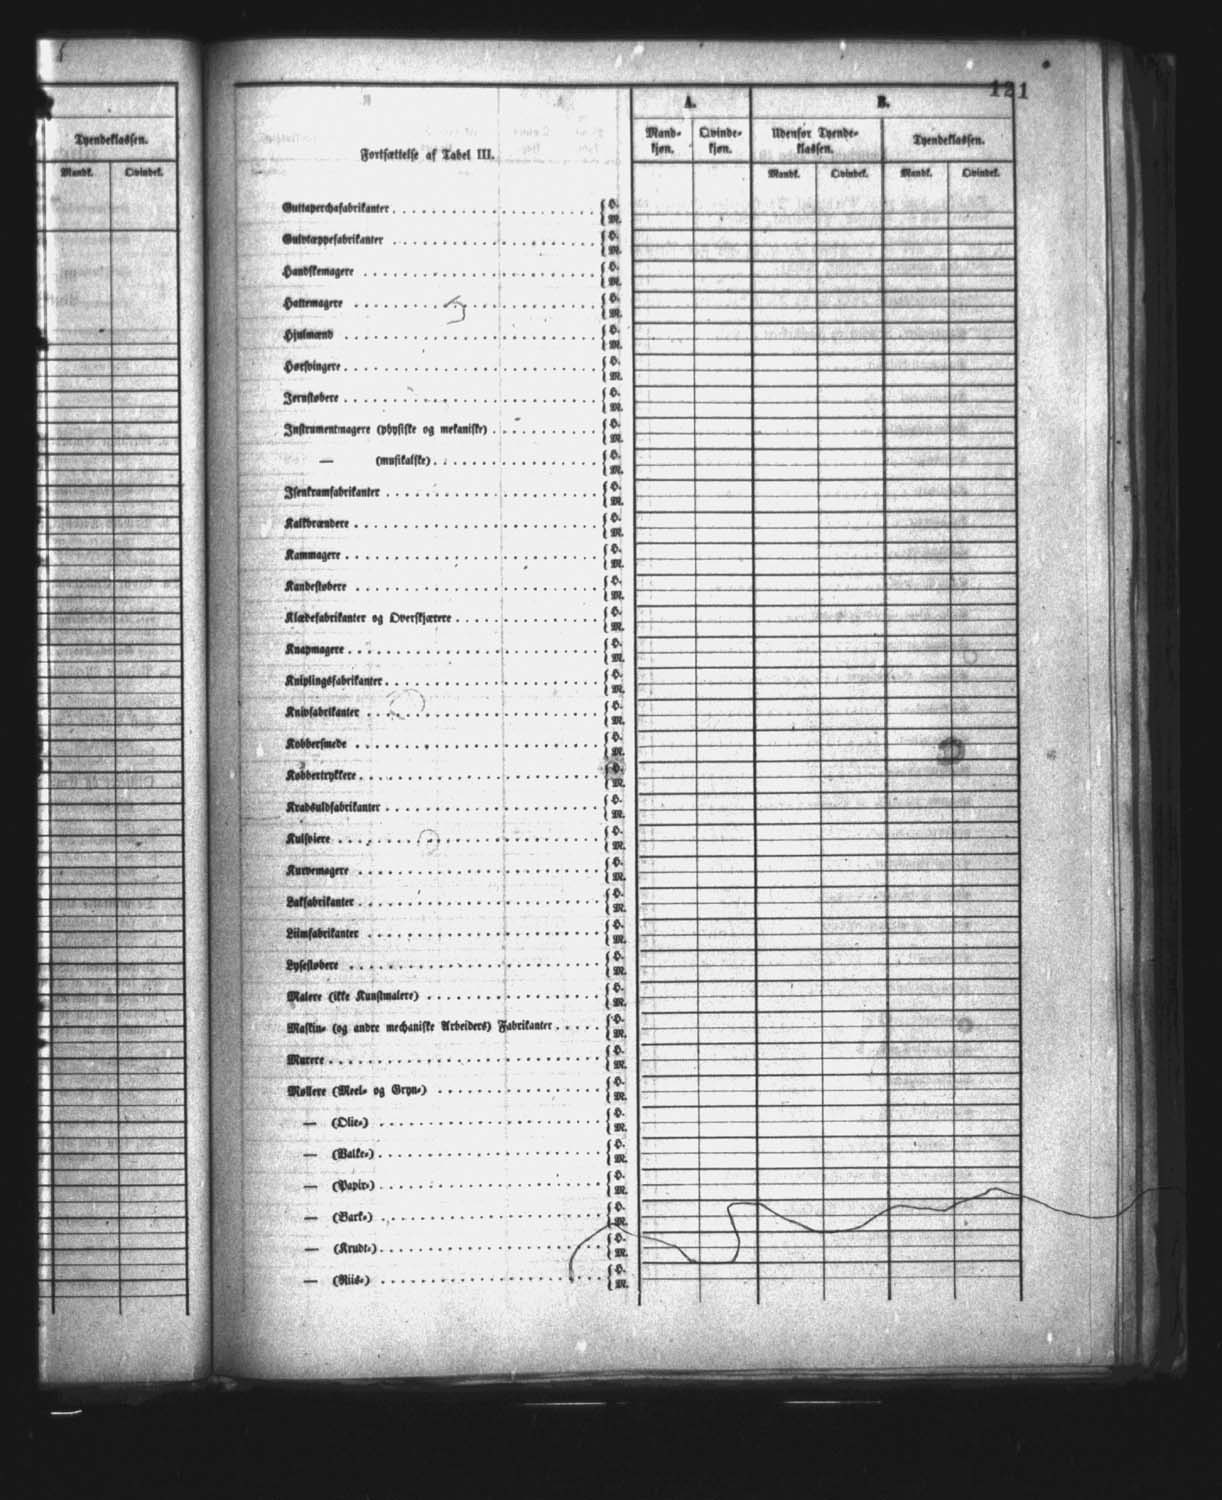 Tyendeklassen.
Mandk. Qvindek.
121
A. B.
Mandkjøn. Qvindekjøn. Udenfor Tyendeklassen. Tyendeklassen.
Mandk. Qvindek. Mandk. Qvindek.
Fortsættelse af Tabel III.
Guttaperchafabrikanter { H. M.
Gulvtæppefabrikanter { H. M.
Handskemagere { H. M.
Hattemagere { H. M.
Hjulmænd { H. M.
Hørsvingere { H. M.
Jernstøbere { H. M.
Instrumentmagere (physiske og mekaniske) { H. M.
— (musikalske) { H. M.
Isenkramfabrikanter { H. M.
Kalkbrændere { H. M.
Kammagere { H. M.
Kandestøbere { H. M.
Klædefabrikanter og Overskjærere { H. M.
Knapmagere { H. M.
Kniplingsfabrikanter { H. M.
Knivfabrikanter { H. M.
Kobbersmede { H. M.
Kobbertrykkere { H. M.
Kradsuldfabrikanter { H. M.
Kulsviere { H. M.
Kurvemagere { H. M.
Lakfabrikanter { H. M.
Liimfabrikanter { H. M.
Lysestøbere { H. M.
Malere (ikke Kunstmalere) { H. M.
Maskin- (og andre mechaniske Arbeiders) Fabrikanter { H. M.
Murere { H. M.
Møllere (Meel- og Gryn-) { H. M.
— (Olie-) { H. M.
— (Valke-) { H. M.
— (Papir-) { H. M.
— (Bark-) { H. M.
— (Krudt-) { H. M.
— (Riis-) { H. M.